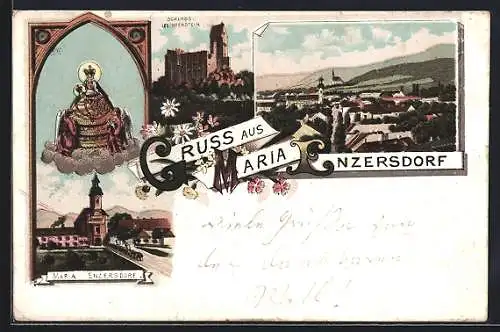 SCHLOSS
LIECHTENSTEIN
GRUSS AUS
MARIA ENZERSDORF
MARIA ENZERSDORF.
viele Grüße von
der dankbaren